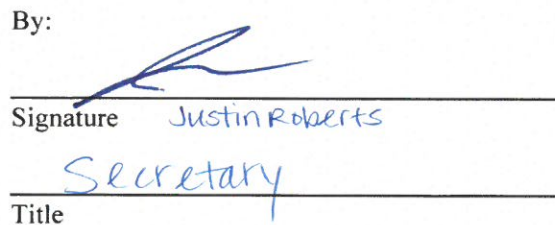 By:
Signature Justin Roberts
Secretary
Title